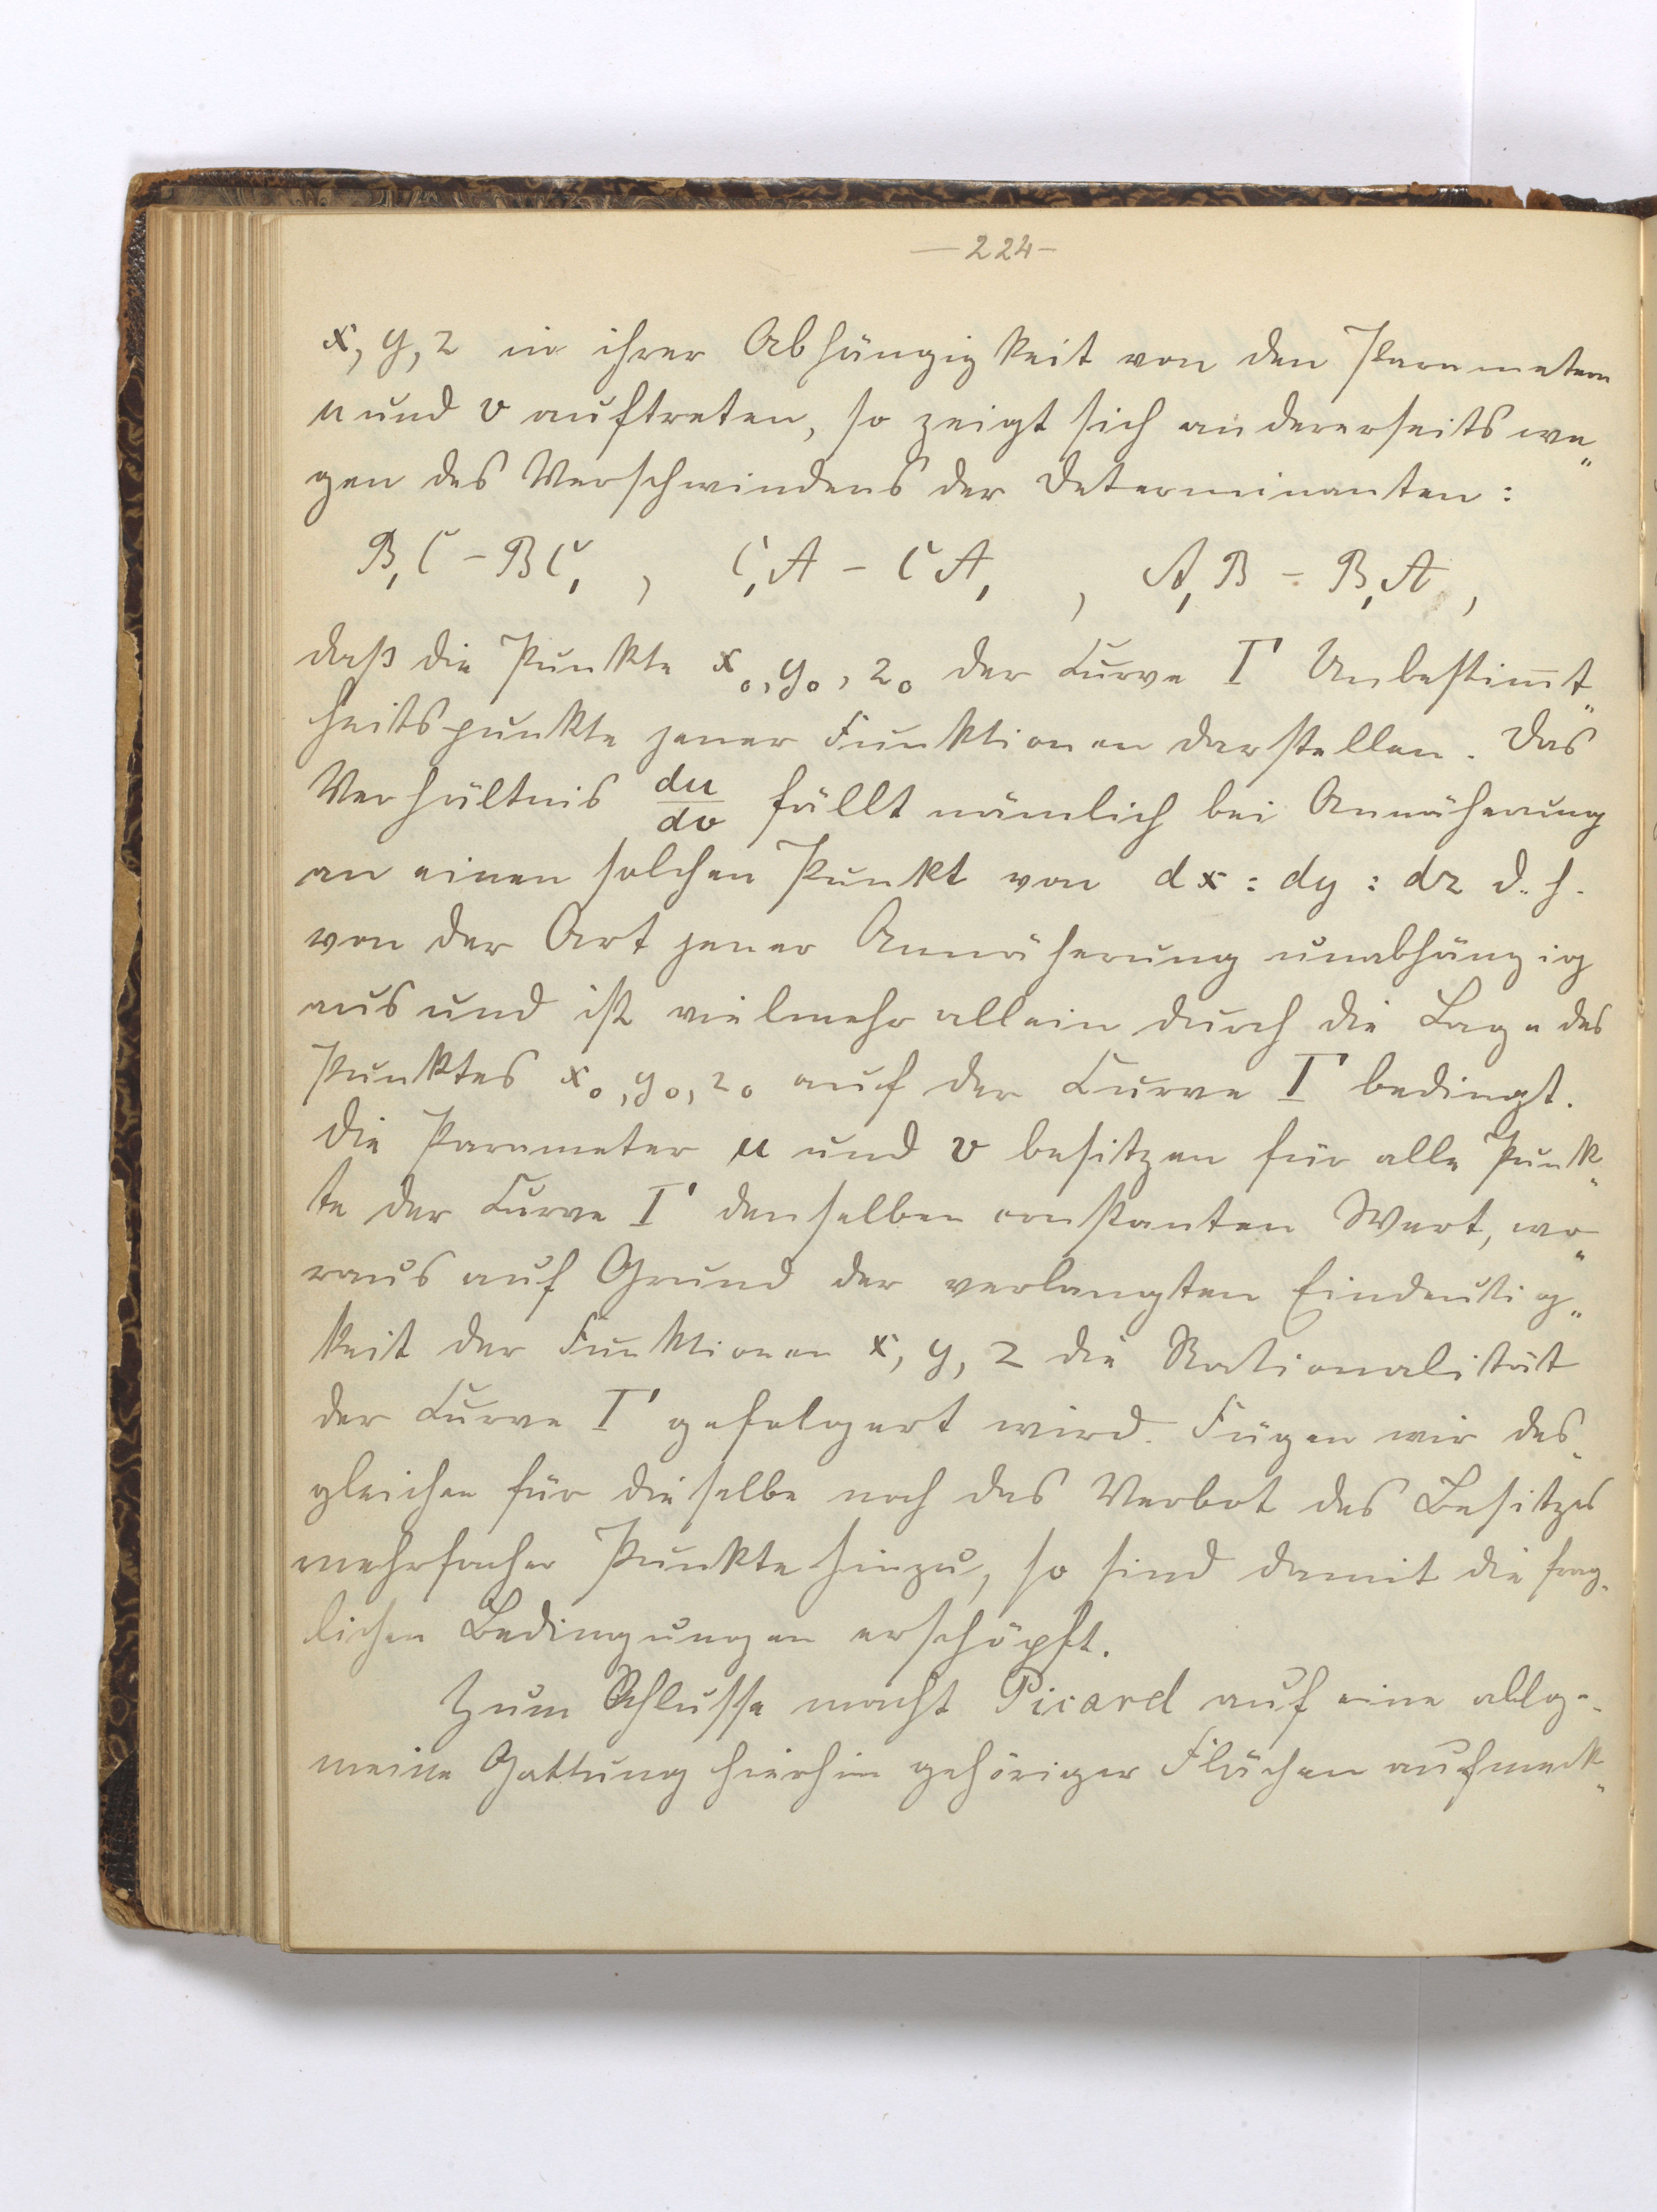 —224—
x, y, z in ihrer Abhängigkeit von den Parametern
u und v auftreten, so zeigt sich andererseits we„
gen des Verschwindens der Determinanten:
B₁C – BC₁ , C₁A – CA₁ , A₁B – B₁A ,
daß die Punkte x₀, y₀, z₀ der Curve Γ Unbestim̅t„
heitspunkte jener Funktionen darstellen. Das
Verhältnis du/dv fällt nämlich bei Annäherung
an einen solchen Punkt von dx : dy : dz d. h.
von der Art jener Annäherung unabhängig
aus und ist vielmehr allein durch die Lage des
Punktes x₀, y₀, z₀ auf der Curve Γ bedingt.
Die Parameter u und v besitzen für alle Punk„
te der Curve Γ denselben constanten Wert, wo„
raus auf Grund der verlangten Eindeutig„
keit der Funktionen x, y, z die Rationalität
der Curve Γ gefolgert wird. Fügen wir des„
gleichen für dieselbe noch das Verbot des Besitzes
mehrfacher Punkte hinzu, so sind damit die frag„
lichen Bedingungen erschöpft.
Zum Schlusse macht Picard auf eine allge„
meine Gattung hierhin gehöriger Flächen aufmerk„